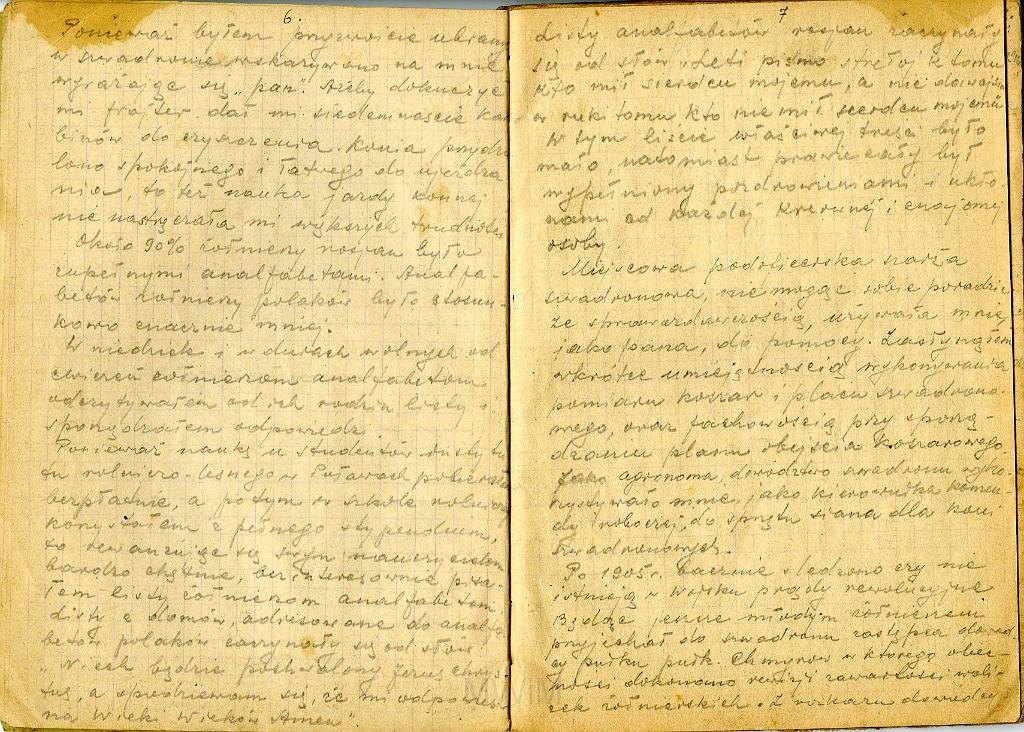 6.
Ponieważ byłem przyzwoicie ubrany
w szwadronie wskazywano na mnie
wyrażając się „pan". Ażeby dokuczyć
mi frajter dał mi siedemnaście kara-
binów do czyszczenia. Konia przydzie
lono spokojnego i łatwego do ujeżdża
nia, to też nauka jazdy konnej
nie nastręczała mi większych trudności.
Około 90% żołnierzy rosjan było
zupełnymi analfabetami. Analfa-
betów żołnierzy polaków było stosun-
kowo znacznie mniej.
W niedziele i w dniach wolnych od
ćwiczeń żołnierzom analfabetom
odczytywałem od ich rodzin listy i
sporządzałem odpowiedzi.
Ponieważ naukę u studentów instytu
tu rolniczo-leśnego w Puławach pobierałem
bezpłatnie, a potym w szkole rolniczej
korzystałem z pełnego stypendium,
to rewanżując się swym nauczycielom
bardzo chętnie, bezinteresownie pisa-
łem listy żołnierzom analfabetom.
Listy z domów, adresowane do analfa
betów polaków zaczynały się od słów
„Niech będzie pochwalony Jezus Chrys
tus, a spodziewam się, że mi odpowiesz
na wieki wieków Amen".
7
Listy analfabetów rosjan zaczynały
się od słów „Leti piśmo strełoj k tomu
kto mił sierdcu mojemu, a nie dawajsia
w ruki tomu kto nie mił sierdcu mojemu
W tym liście właściwej treści było
mało, natomiast prawie cały był
wypełniony pozdrowieniami i ukło-
nami od każdej krewnej i znajomej
osoby.
Miejscowa podoficerska szarża
szwadronowa, nie mogąc sobie poradzić
ze sprawozdawczością, używała mnie,
jako pana, do pomocy. Zasłynąłem
wkrótce umiejętnością wykonywania
pomiaru koszar i placu szwadrono-
wego, oraz fachowością przy sporzą-
dzaniu planu obejścia koszarowego.
Jako agronoma, dowództwo szwadronu wyko-
rzystywało mnie, jako kierownika komen-
dy roboczej, do sprzętu siana dla koni
szwadronowych.
Po 1905 r. bacznie śledzono czy nie
istnieją w wojsku prądy rewolucyjne
Będąc jeszcze młodym żołnierzem
przyjechał do szwadronu zastępca dowód
cy pułku pułk. Chmyrow w którego obec-
ności dokonano rewizji zawartości wali-
zek żołnierskich. Z rozkazu dowódcy